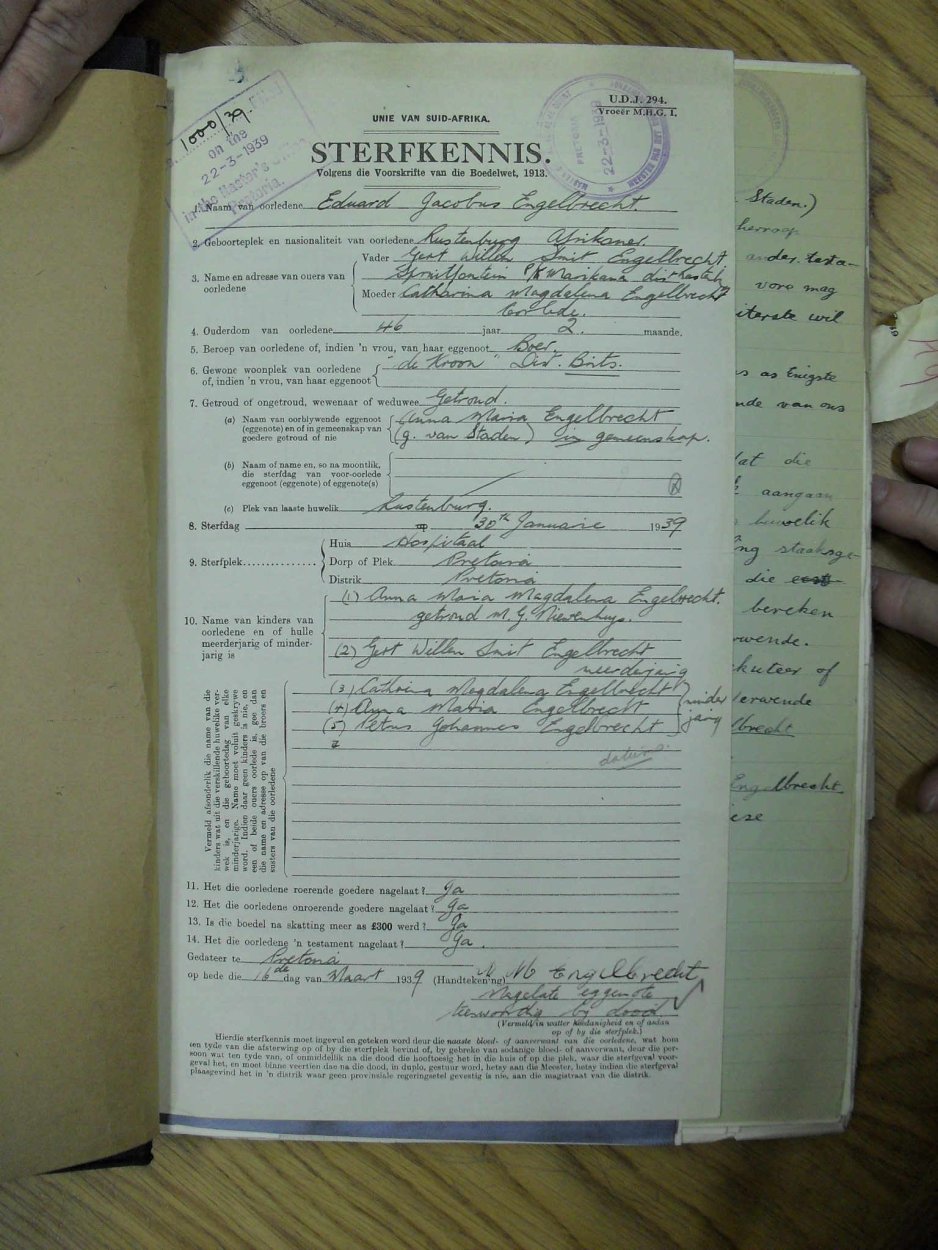 U.D.J. 294.
Vroeër M.H.G. 1.
1000/39
on the
22-3-1939
in the Master's Office
Pretoria.
PRETORIA
22-3-1939
UNIE VAN SUID-AFRIKA.
STERFKENNIS.
Volgens die Voorskrifte van die Boedelwet, 1913.
1. Naam van oorledene Eduard Jacobus Engelbrecht.
2. Geboorteplek en nasionaliteit van oorledene Rustenburg Afrikaner.
3. Name en adresse van ouers van oorledene
Vader Gert Willem Smit Engelbrecht
Marikana dist Rustenb
Moeder Catharina Magdalena Engelbrecht
Oorlede.
4. Ouderdom van oorledene 46 jaar 2 maande.
5. Beroep van oorledene of, indien 'n vrou, van haar eggenoot Boer.
6. Gewone woonplek van oorledene of, indien 'n vrou, van haar eggenoot "de Kroon" Dist. Brits.
7. Getroud of ongetroud, wewenaar of weduwee Getroud.
(a) Naam van oorblywende eggenoot (eggenote) en of in gemeenskap van goedere getroud of nie
Anna Maria Engelbrecht
(g. van Staden) in gemeenskap.
(b) Naam of name en, so na moontlik, die sterfdag van voor-oorlede eggenoot (eggenote) of eggenote(s)
(c) Plek van laaste huwelik Rustenburg.
8. Sterfdag op 30th Januarie 1939
9. Sterfplek
Huis Hospitaal
Dorp of Plek Pretoria
Distrik Pretoria
10. Name van kinders van oorledene en of hulle meerderjarig of minderjarig is
(1) Anna Maria Magdalena Engelbrecht.
getroud m. G. Niewenhuys.
(2) Gert Willem Smit Engelbrecht
meerderjarig
(3) Cathrina Magdalena Engelbrecht
(4) Anna Maria Engelbrecht
(5) Petrus Johannes Engelbrecht
minder
jarig
datums.
Vermeld afsonderlik die name van die
kinders wat uit die verskillende huwelike ver-
wek is, en die geboortedag van elke
minderjarige. Name moet voluit geskrywe
word. Indien daar geen kinders is nie, en
een of beide ouers oorlede is, gee dan
die name en adresse op van die broers en
susters van die oorledene
11. Het die oorledene roerende goedere nagelaat? Ja
12. Het die oorledene onroerende goedere nagelaat? Ja
13. Is die boedel na skatting meer as £300 werd? Ja
14. Het die oorledene 'n testament nagelaat? Ja.
Gedateer te Pretoria
op hede die 16de dag van Maart 1939 (Handtekening) A M Engelbrecht
Nagelate eggenote
teenwoordig bij dood.
(Vermeld in watter hoedanigheid en of andan
op of by die sterfplek.)
Hierdie sterfkennis moet ingevul en geteken word deur die naaste bloed- of aanverwant van die oorledene, wat hom
ten tyde van die afsterwing op of by die sterfplek bevind of, by gebreke van sodanige bloed- of aanverwant, deur die per-
soon wat ten tyde van, of onmiddellik na die dood die hooftoesig het in die huis of op die plek, waar die sterfgeval voor-
geval het, en moet binne veertien dae na die dood, in duplo, gestuur word, hetsy aan die Meester, hetsy indien die sterfgeval
plaasgevind het in 'n distrik waar geen provinsiale regeringsetel gevestig is nie, aan die magistraat van die distrik.
Staden.)
herroep
ander testa-
voro mag
wil
as Enigste
van ons
dat die
aangaan
huwelik
staatsge-
die
bereken
of
Engelbrecht